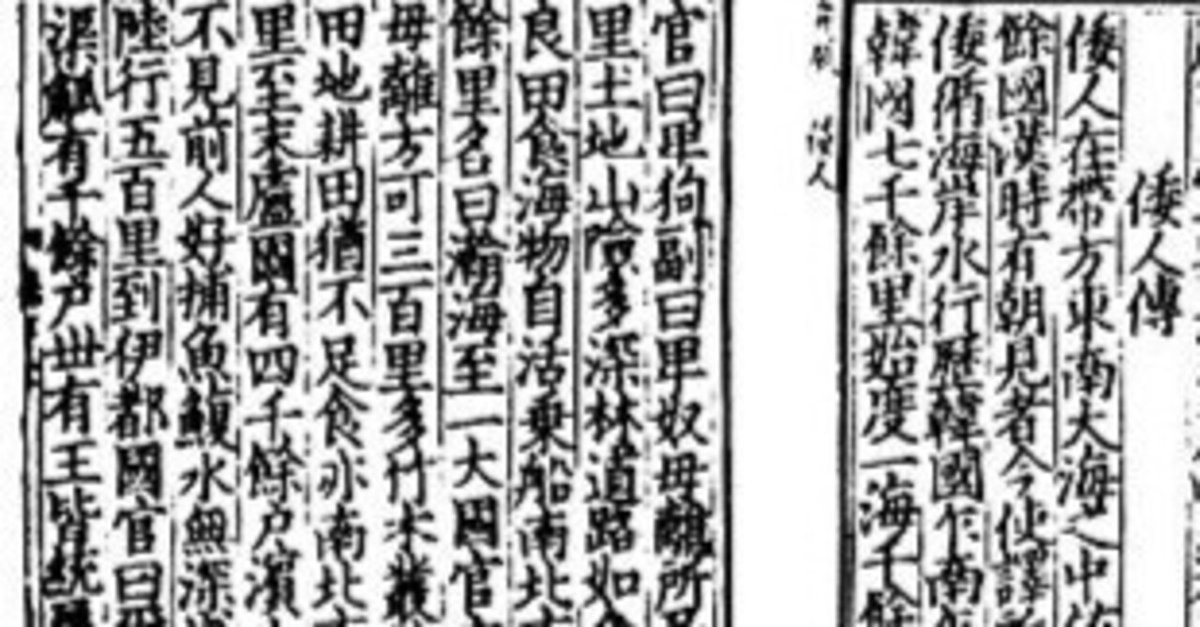 倭人傳
倭人在帶方東南大海之中
餘國漢時有朝見者今使譯
倭循海岸水行歷韓國乍南
韓國七千餘里始度一海千餘
倭人
官曰卑狗副曰卑奴毋離所
里土地山險多深林道路如
良田食海物自活乗船南北
餘里名曰瀚海至一大國官
毋離方可三百里多竹木叢
田地耕田猶不足食亦南北
里至末盧國有四千餘户濱
不見前人好捕魚鰒水無深
陸行五百里到伊都國官曰
渠觚有千餘户丗有王皆統